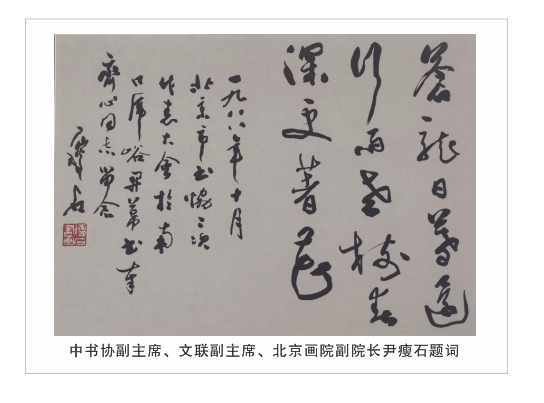 蒼龍日暮還
行雨老樹春
深更著花
一九八八年十月
北京市书协二次
代表大会於南
口虎峪开幕书奉
齊心同志留念
瘦石
中书协副主席、文联副主席、北京画院副院长尹瘦石题词